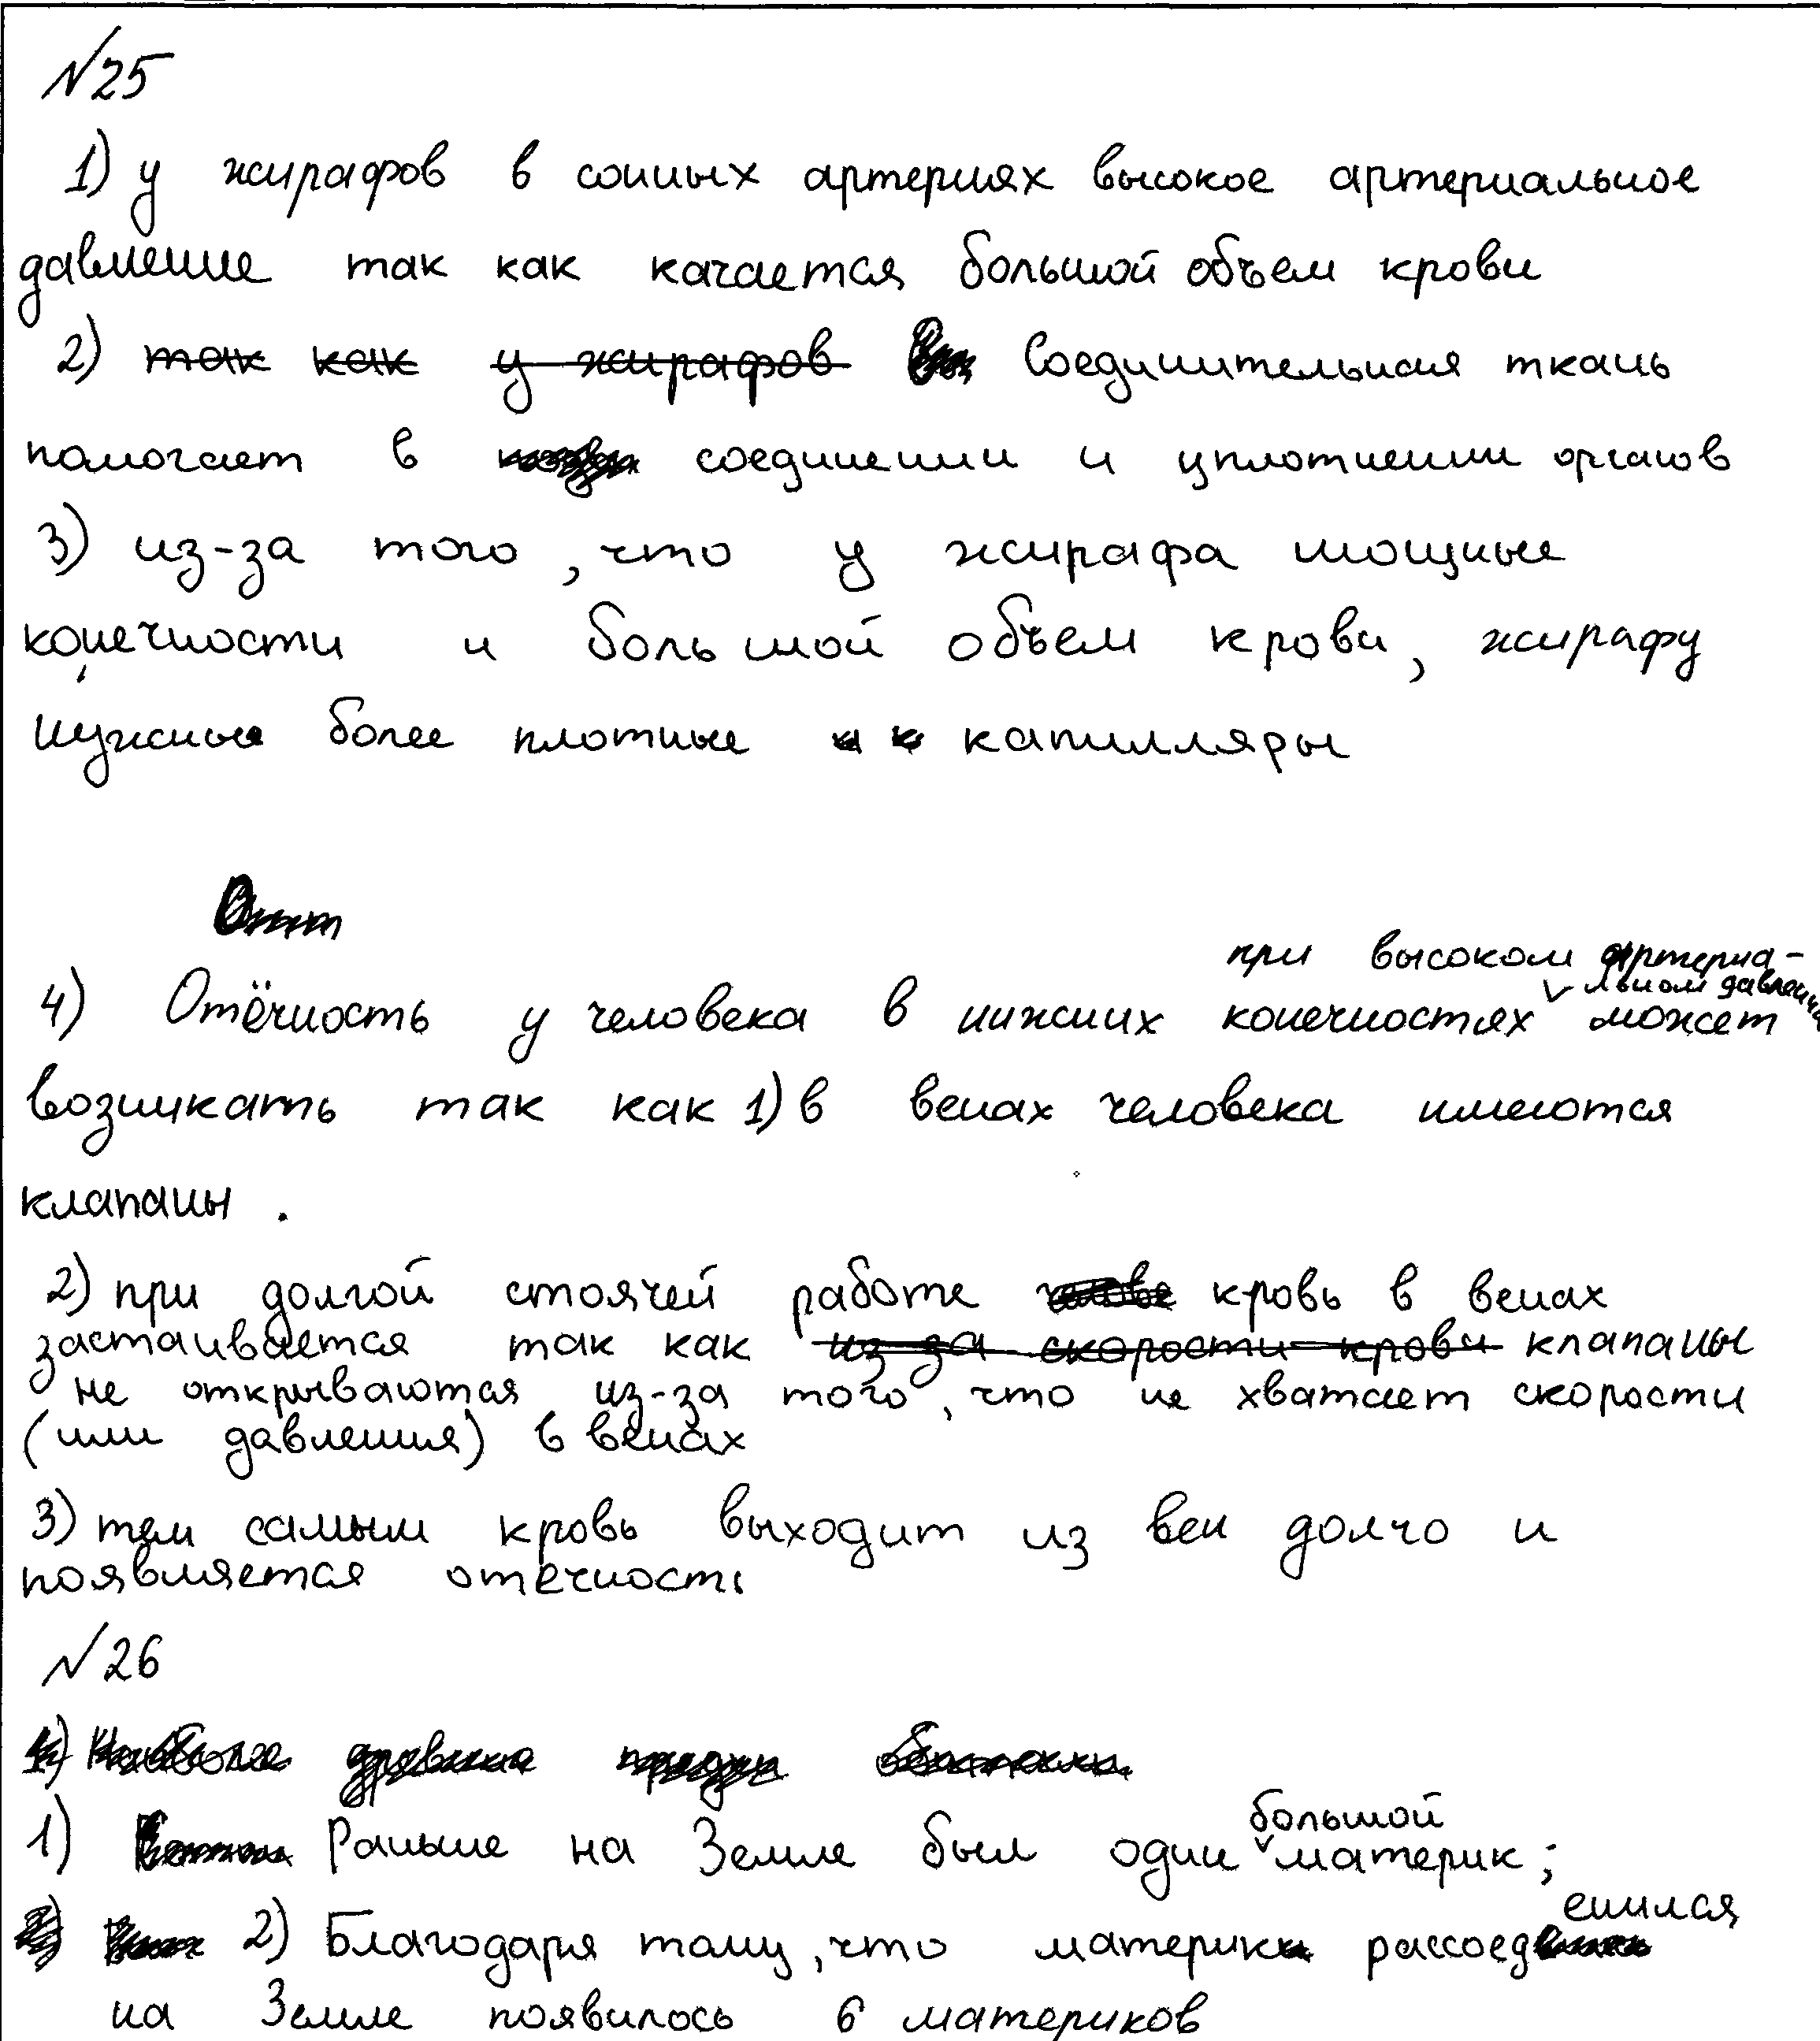 №25
1) у жирафов в сонных артериях высокое артериальное
давление так как качается большой объем крови
2) ~~так как у жирафов~~ Соединительная ткань
помогает в соединении и уплотнении органов
3) из-за того, что у жирафа мощные
конечности и большой объем крови, жирафу
нужные более плотные капилляры
при высоком артериа-
льном давлении
4) Отёчность у человека в нижних конечностях может
возникать так как 1) в венах человека имеются
клапаны.
2) при долгой стоячей работе кровь в венах
застаивается так как ~~из за скорости крови~~ клапаны
не открываются из-за того, что не хватает скорости
(или давления) в венах
3) тем самым кровь выходит из вен долго и
появляется отёчность
№26
большой
1) Раньше на Земле был один материк;
2) Благодаря тому, что материк рассоеденился
на Земле появилось 6 материков